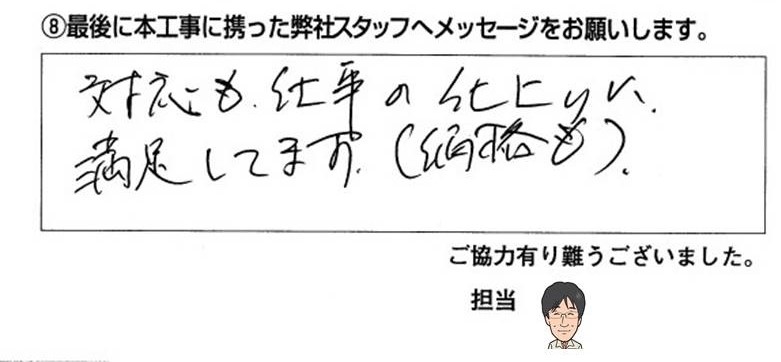 ⑧最後に本工事に携った弊社スタッフへメッセージをお願いします。
対応も、仕事の仕上りに、
満足してます。(価格も)。
ご協力有り難うございました。
担当